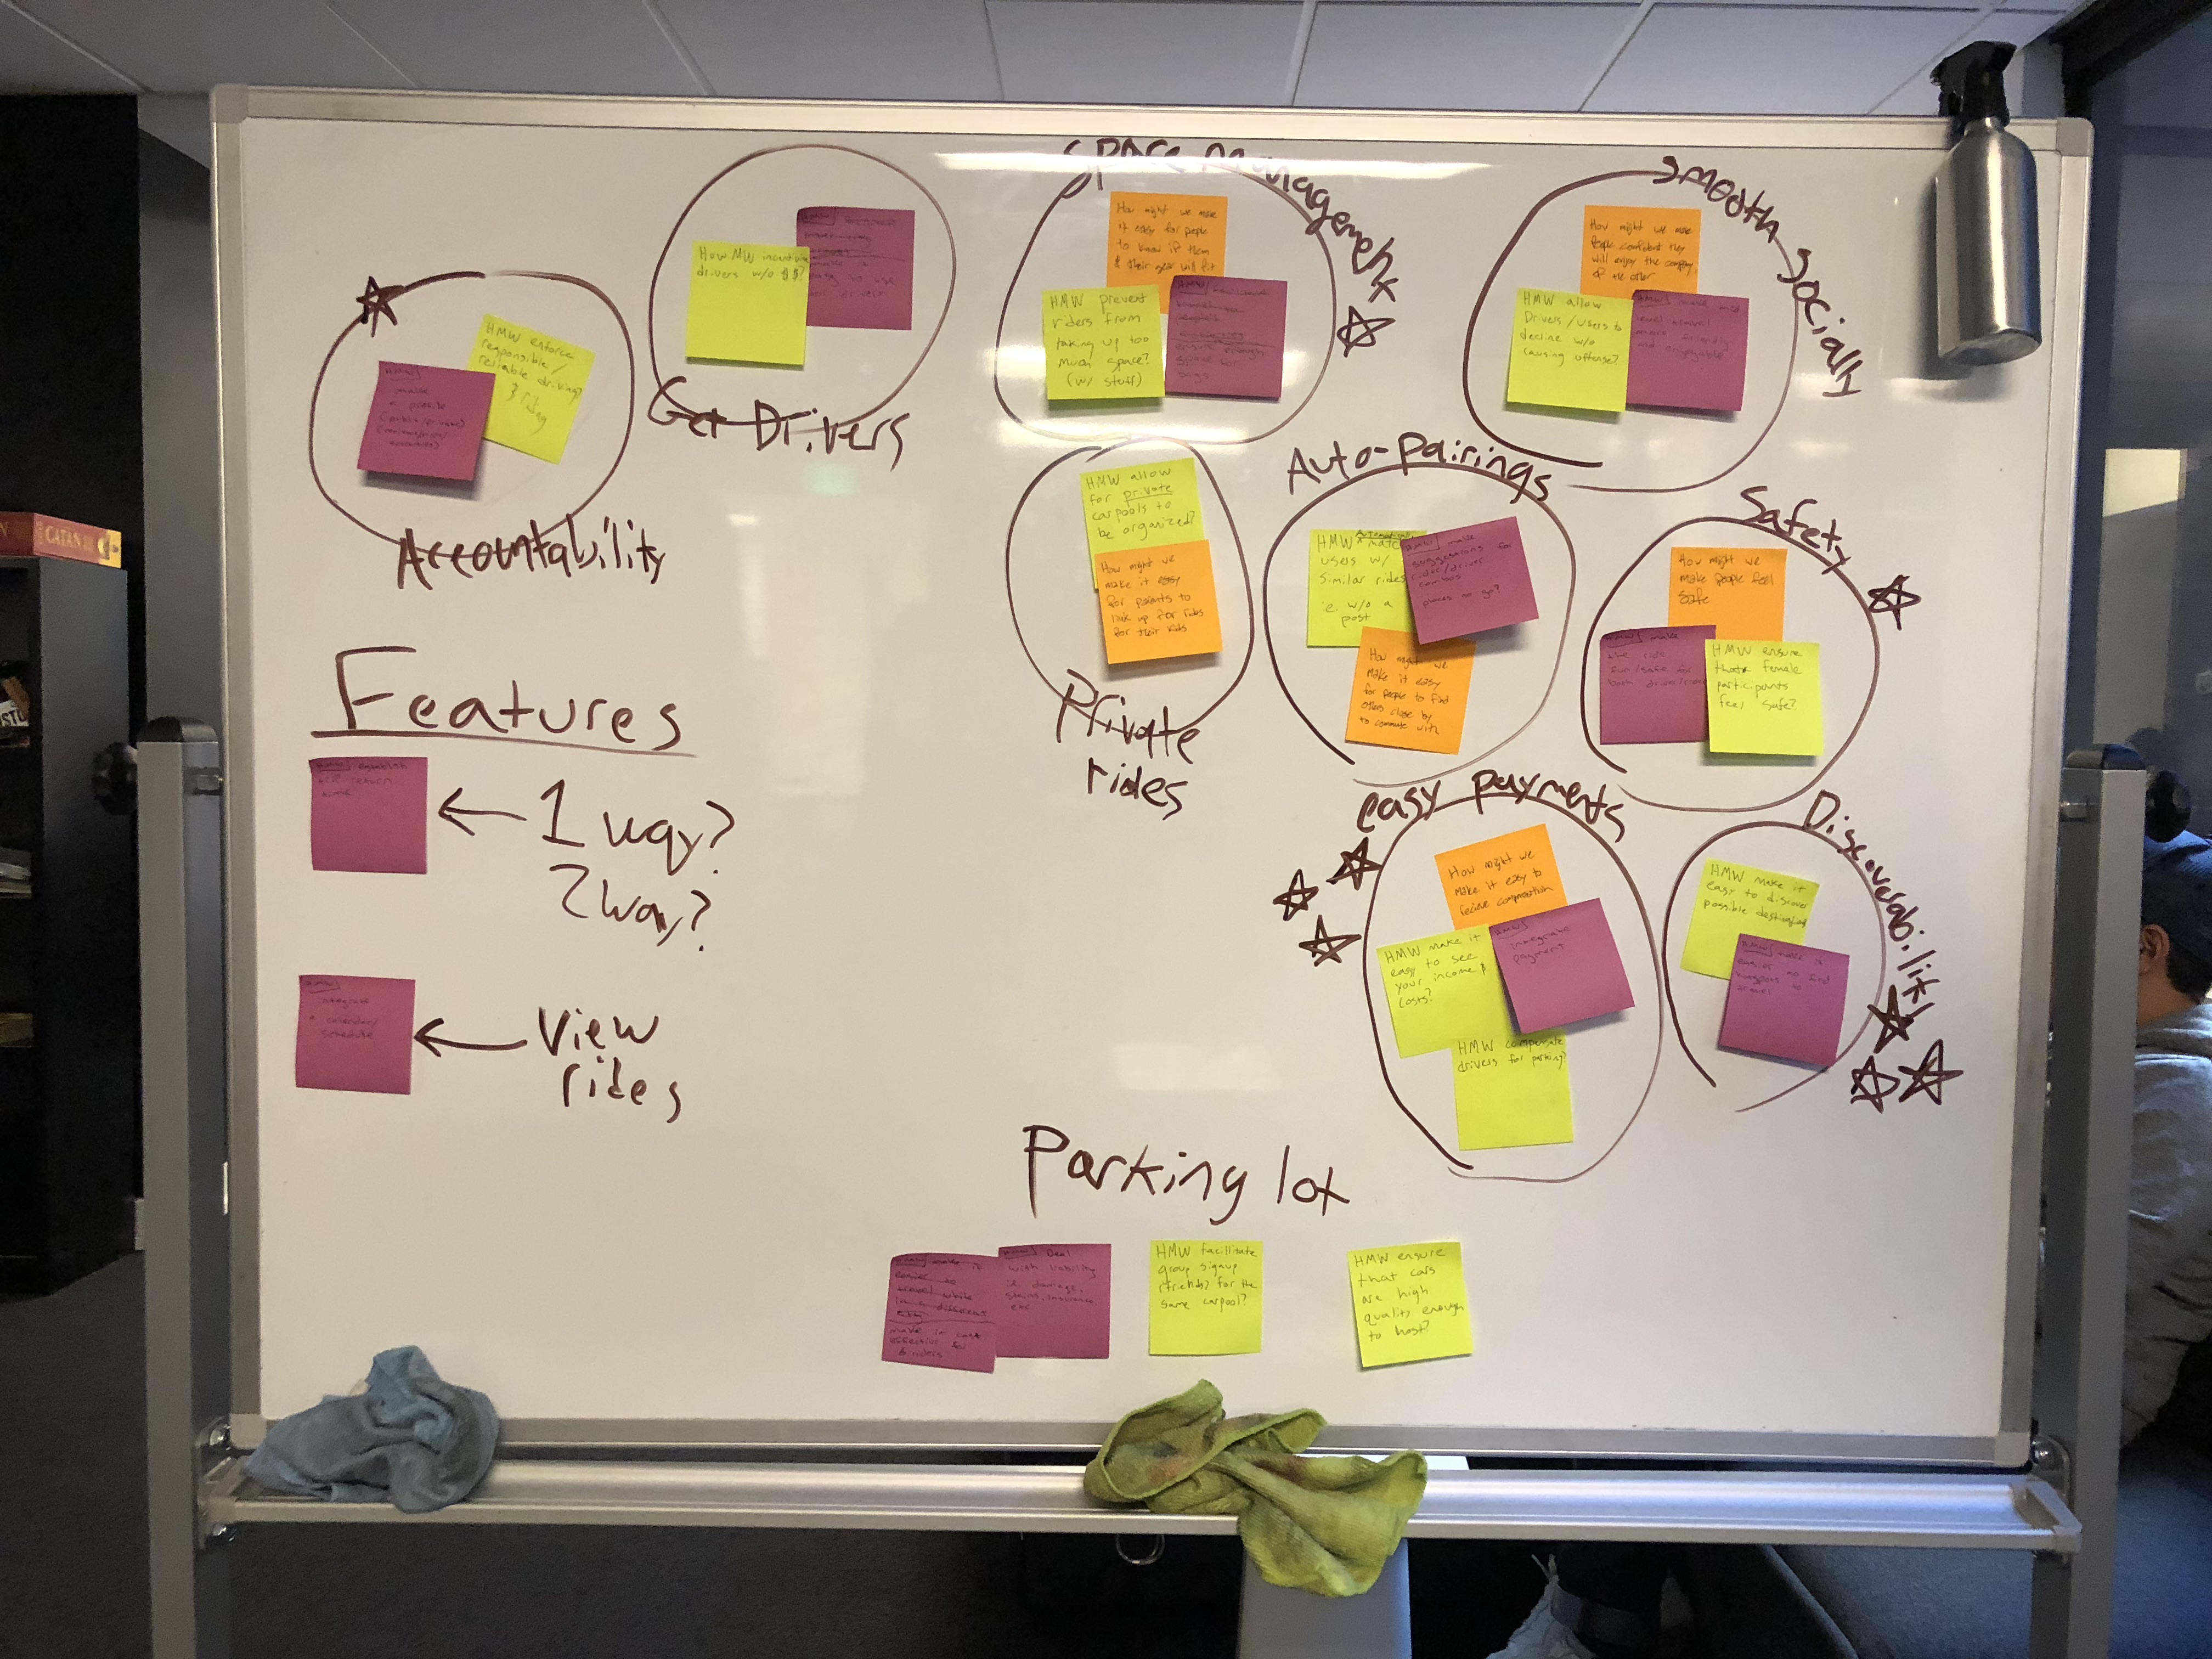 Accountability
HMW enforce
responsible/
reliable driving?
& riding
HMW
make
a profile
(public/private)
Get Drivers
How MW incentivize
drivers w/o $$?
HMW
Space Management
How might we make
it easy for people
to know if them
& their gear will fit
HMW prevent
riders from
taking up too
much space?
(w/ stuff)
HMW
people's
enough
space for
bags
Smooth socially
How might we make
People confident they
will enjoy the company
of the other
HMW allow
Drivers/users to
decline w/o
causing offense?
HMW make
level travel
more friendly
and enjoyable
Private
rides
HMW allow
for private
carpools to
be organized?
How might we
make it easy
for parents to
link up for rides
for their kids
Auto-pairings
Automatically
HMW ^ match
users w/
similar rides
i.e. w/o a
post
HMW make
suggestions for
rider/driver
combos
places to go?
How might we
make it easy
for people to find
others close by
to commute with
Safety
How might we
make people feel
safe
HMW make
the ride
fun/safe for
both
HMW ensure
that female
participants
feel safe?
easy payments
How might we
make it easy to
recieve compensation
HMW make it
easy to see
your income &
costs?
HMW
integrate
payment
HMW compensate
drivers for parking?
Discoverability
HMW make it
easy to discover
possible destinations
HMW make it
easier to find
to
travel
Features
HMW establish
return
time
1 way?
2 way?
HMW
integrate
a calendar/
schedule
View
rides
Parking lot
HMW make it
easier to
travel while
in a different
city
make it cost
effective for
& riders
HMW Deal
with liability
ie damage,
stains, insurance
etc
HMW facillitate
group signup
(friends) for the
same carpool?
HMW ensure
that cars
are high
quality enough
to host?
CATAN